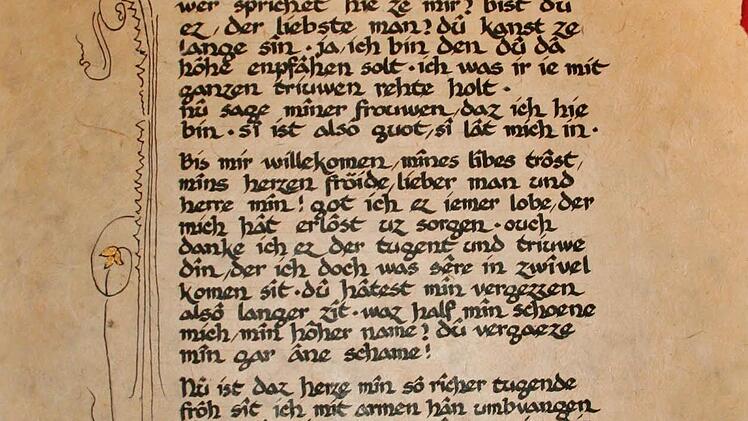 wer sprichet hie ze mir? bist dû
ez, der liebste man? dû kanst ze
lange sîn · ja, ich bin den dû dâ
hôhe enpfâhen solt · ich was ir ie mit
ganzen triuwen rehte holt ·
nû sage mîner frouwen, daz ich hie
bin · sî ist alsô guot, sî lât mich in ·
Bis mir willekomen, mînes lîbes trôst,
mîns herzen fröide, lieber man und
herre mîn! got ich ez iemer lobe, der
mich hât erlôst uz sorgen · ouch
danke ich ez der tugent und triuwe
dîn, der ich doch was sêre in zwîvel
komen sît · dû hâtest mîn vergezzen
alsô langer zît · waz half mîn schoene
mich, mîn hôher name? dû vergaeze
mîn gar âne schame!
Nû ist daz herze mîn sô rîcher tugende
frôh sît ich mit armen hân umbvangen